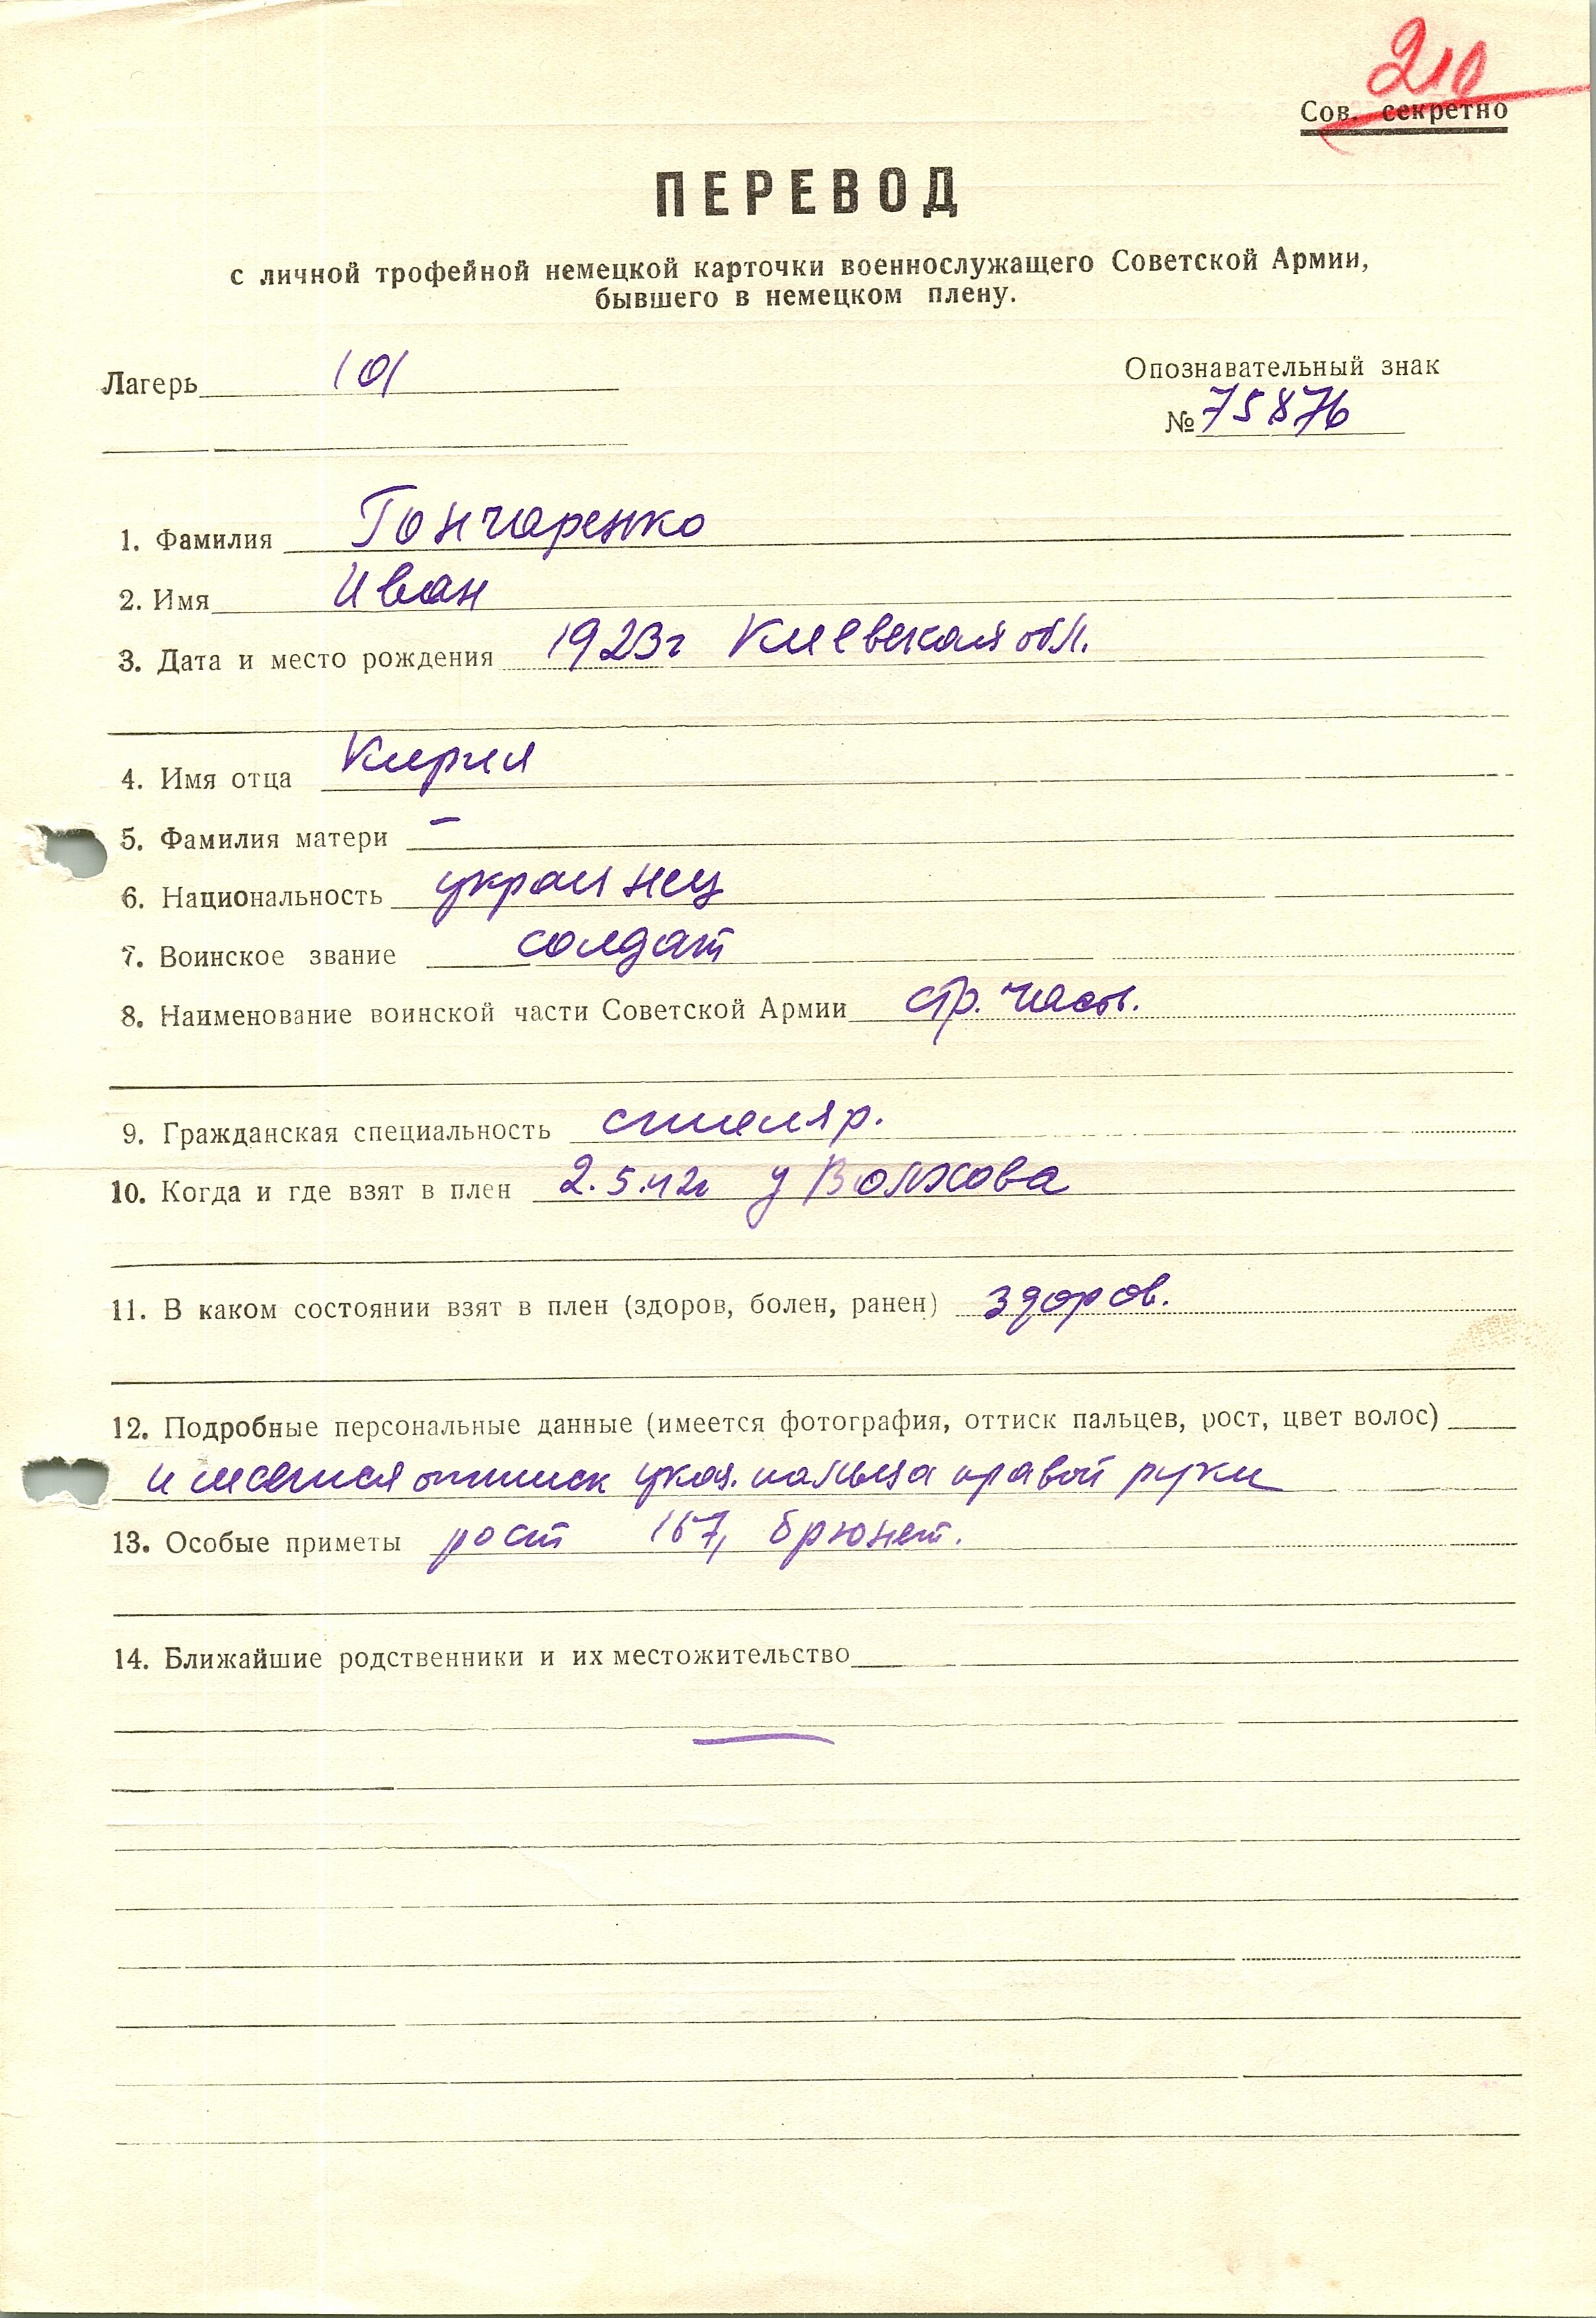 210
Сов. секретно
ПЕРЕВОД
с личной трофейной немецкой карточки военнослужащего Советской Армии,
бывшего в немецком плену.
Лагерь 101
Опознавательный знак
№ 75876
1. Фамилия Гончаренко
2. Имя Иван
3. Дата и место рождения 1923г Киевская обл.
4. Имя отца Кирил
5. Фамилия матери –
6. Национальность украинец
7. Воинское звание солдат
8. Наименование воинской части Советской Армии стр. часть.
9. Гражданская специальность столяр.
10. Когда и где взят в плен 2.5.42г у Волхова
11. В каком состоянии взят в плен (здоров, болен, ранен) здоров.
12. Подробные персональные данные (имеется фотография, оттиск пальцев, рост, цвет волос)
имеется оттиск указ. пальца правой руки
13. Особые приметы рост 167, брюнет.
14. Ближайшие родственники и их местожительство
—